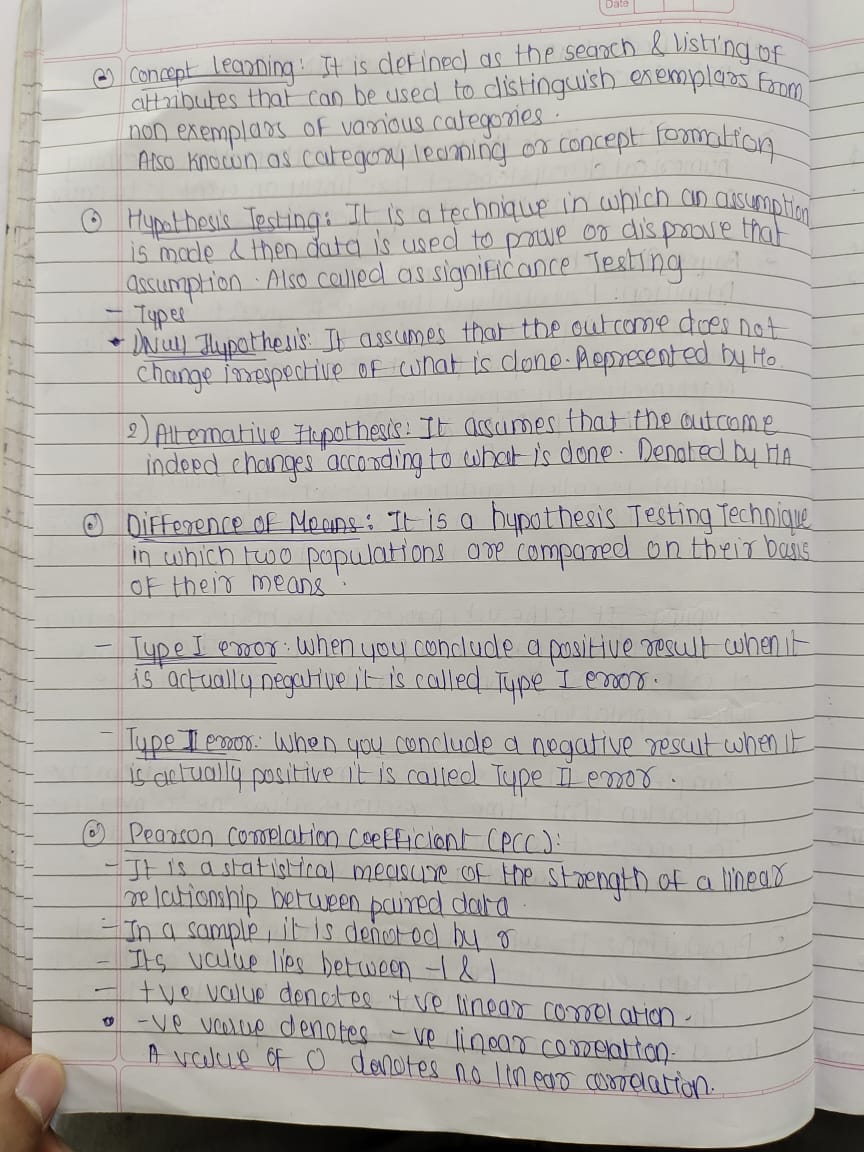 Date
Concept Learning: It is defined as the search & listing of
attributes that can be used to distinguish exemplars from
non exemplars of various categories.
Also known as category learning or concept Formation
Hypothesis Testing: It is a technique in which an assumption
is made & then data is used to prove or disprove that
assumption. Also called as significance Testing
- Types
1) Null Hypothesis: It assumes that the outcome does not
change irrespective of what is done. Represented by H0
2) Alternative Hypothesis: It assumes that the outcome
indeed changes according to what is done. Denoted by HA
Difference of Means: It is a hypothesis Testing Technique
in which two populations are compared on their basis
of their means.
- Type I error: When you conclude a positive result when it
is actually negative it is called Type I error.
- Type II error: When you conclude a negative result when it
is actually positive it is called Type II error.
Pearson Correlation Coefficient (PCC):
- It is a statistical measure of the strength of a linear
relationship between paired data.
- In a sample, it is denoted by r
- Its value lies between -1 & 1
- +ve value denotes +ve linear correlation.
-ve value denotes -ve linear correlation.
A value of 0 denotes no linear correlation.